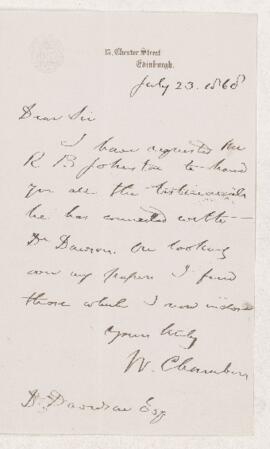 13, Chester Street
Edinburgh.
July 23. 1868
Dear Sir
I have requested Mr
R B Johnston to hand
you all the testimonials
he has connected with
Dr Dawson. On looking
over my papers I find
those which I now inclose
Yours truly
W. Chambers
D. Davidson Esq